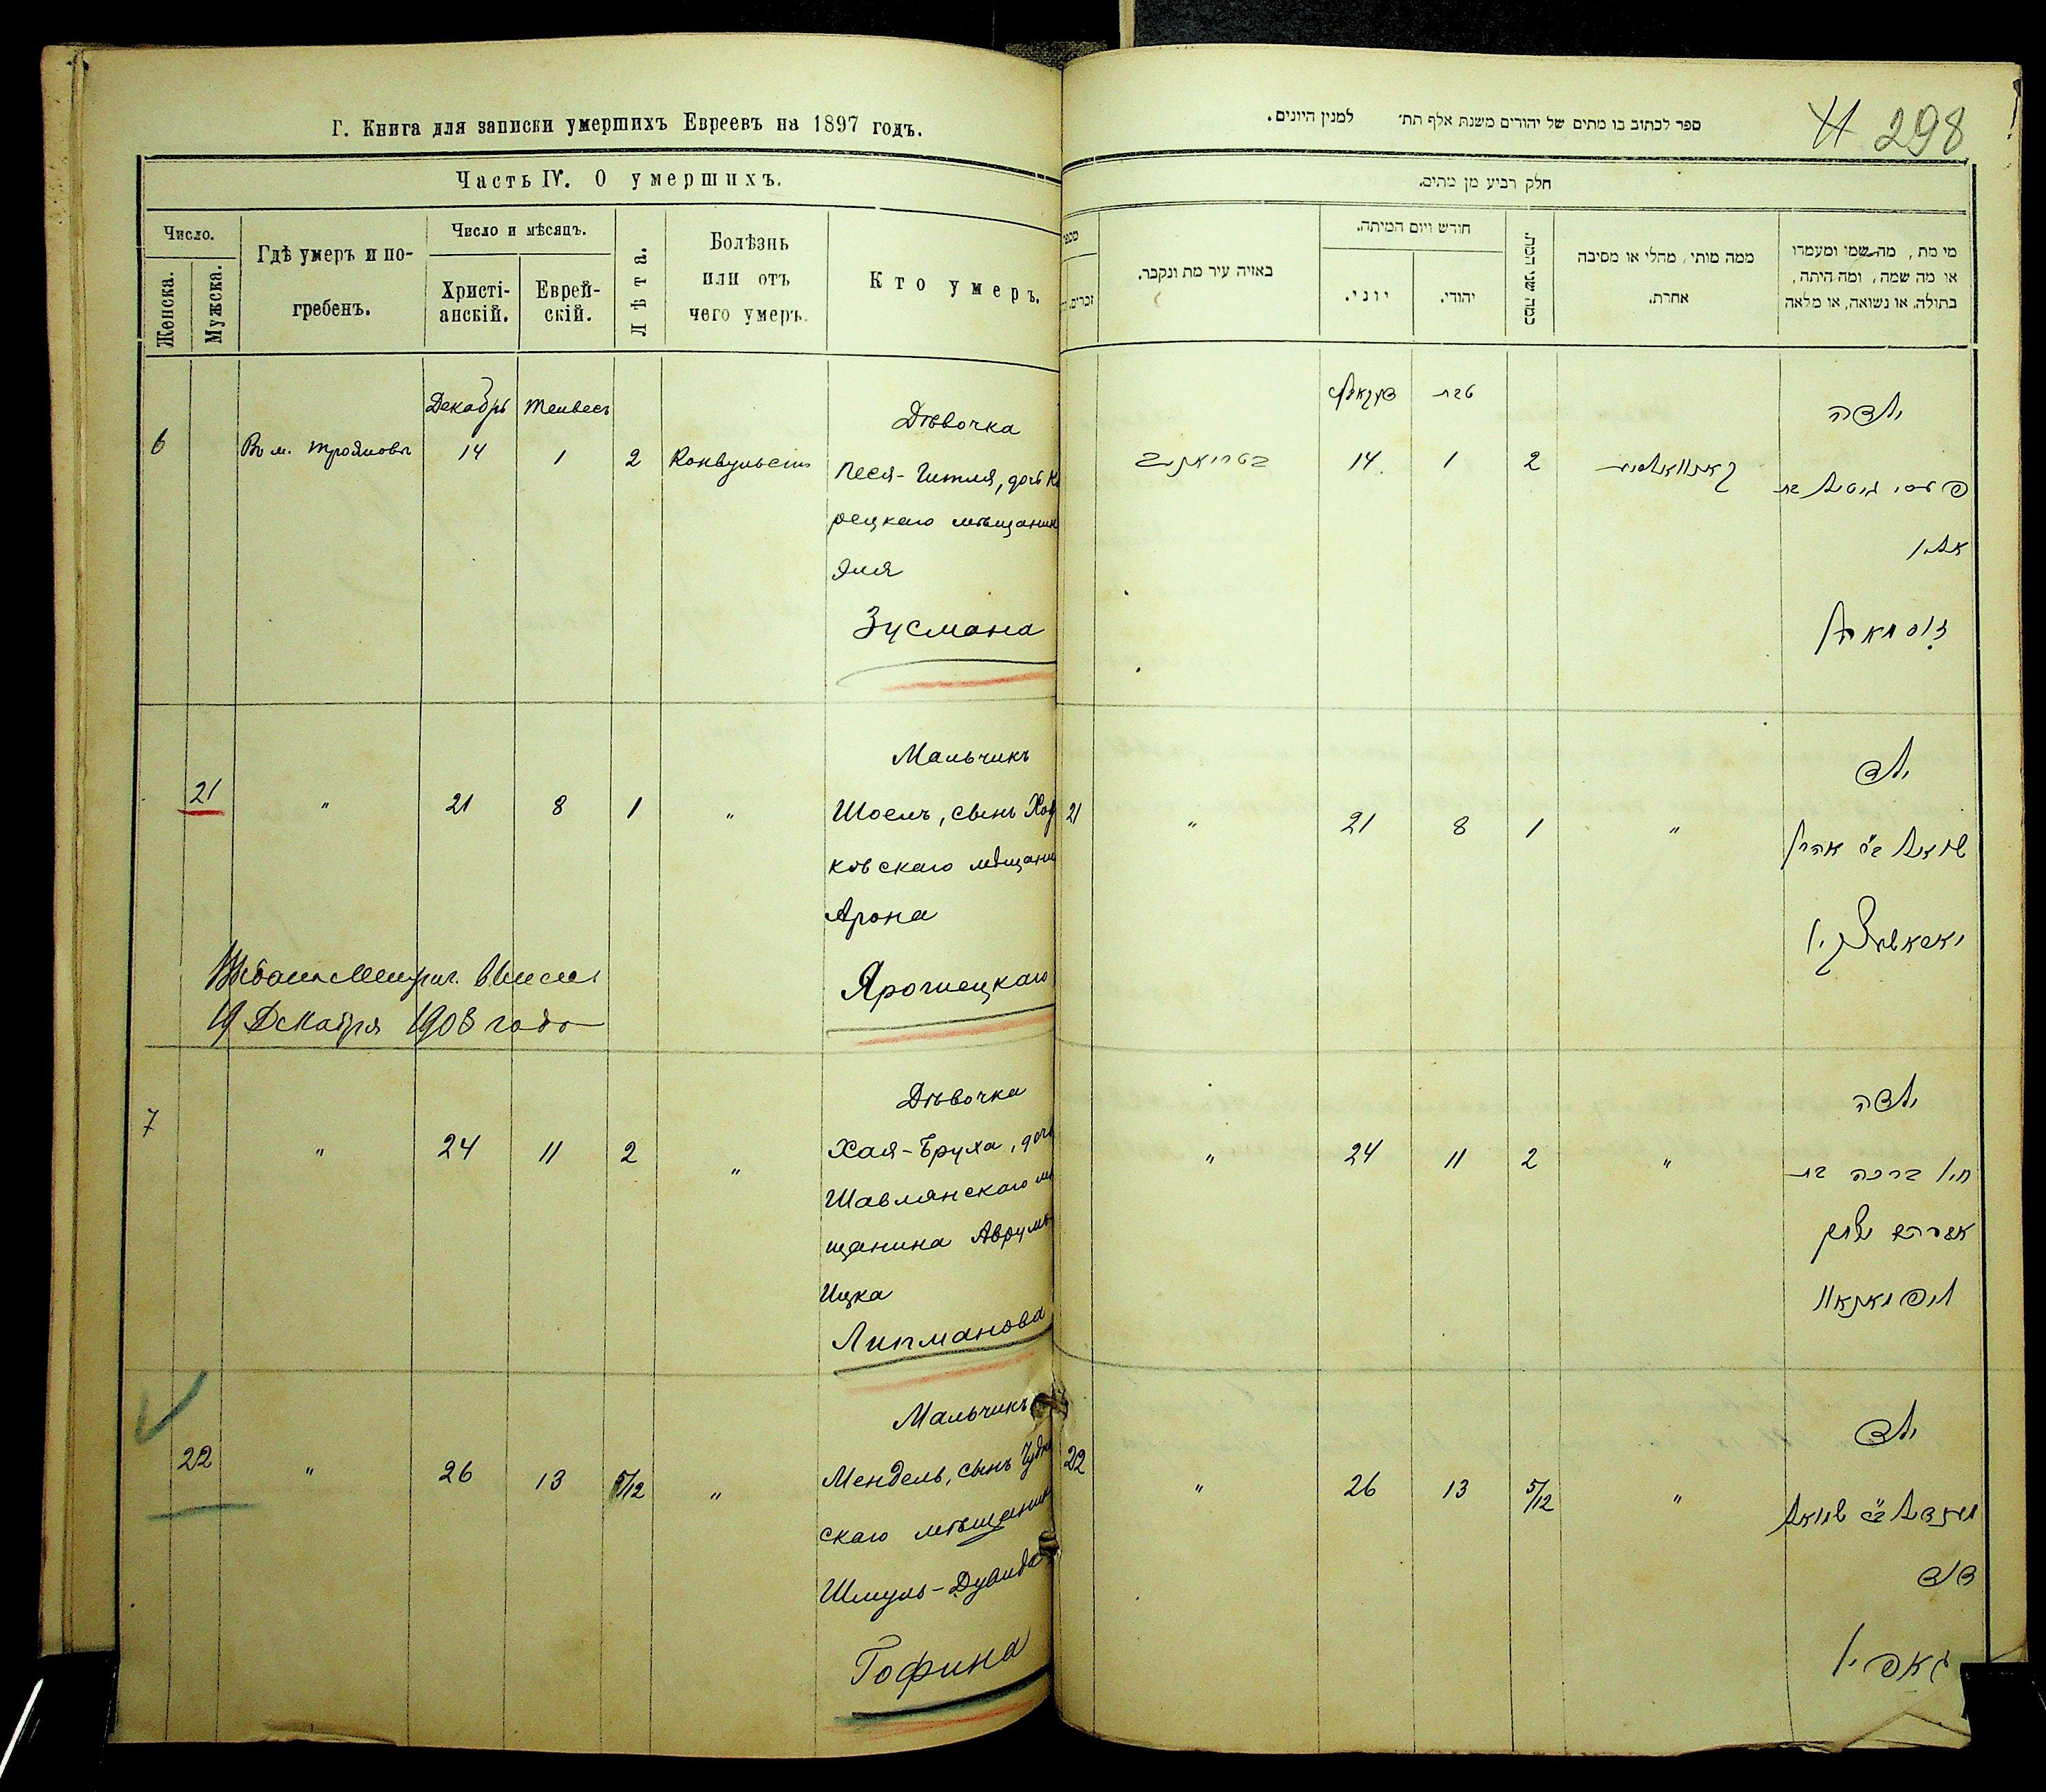 Г. Книга для записки умершихъ Евреевъ на 1897 годъ.
Часть IV. О умершихъ.
Число.
Женска.
Мужска.
Гдѣ умеръ и по-
гребенъ.
Число и мѣсяцъ.
Христі-
анскій.
Еврей-
скій.
Лѣта.
Болѣзнь
или отъ
чего умеръ.
Кто умеръ.
Декабрь Тейвесъ
6 Въ м. Трояновъ 14 1 2 Конвульсіи
Дѣвочка
Песя-Гитля, дочь Ко
рецкаго мѣщанин
Эля
Зусмана
21 " 21 8 1 "
Мальчикъ
Шоелъ, сынъ Ход
ковскаго мѣщани
Арона
Ярошецкаго
19 Декабря 1908 года
7 " 24 11 2 "
Дѣвочка
Хая-Бруха, дочь
Шавлянскаго мѣ
щанина Аврумъ
Ицка
Липманова
22 " 26 13 5/12 "
Мальчикъ
Мендель, сынъ Чудно
скаго мѣщанин
Шмуль-Дувида
Гофина
ספר לכתוב בו מתים של יהודים משנת אלף תת׳ למנין היונים.
298
חלק רביע מן מתים.
מספר
זכרים.
באיזה עיר מת ונקבר.
חודש ויום המיתה.
יוני.
יהודי.
כמה שני המת.
ממה מותו, מחלי או מסיבה
אחרת.
מי מת, מה שמו ומעמדו
או מה שמה, ומה היתה,
בתולה. או נשואה, או מלאה
דעקאבר טבת
14 1 2
ילדה
פעסי גיטל בת
אלי
זוסמאן
21 " 21 8 1 "
ילד
שואל ב״ר אהרן
" 24 11 2 "
ילדה
חי׳ ברכה בת
אברהם יצחק
ליפמאנאוו
22 " 26 13 5/12 "
ילד
מענדל ב״ר שמואל
דוד
גאפין